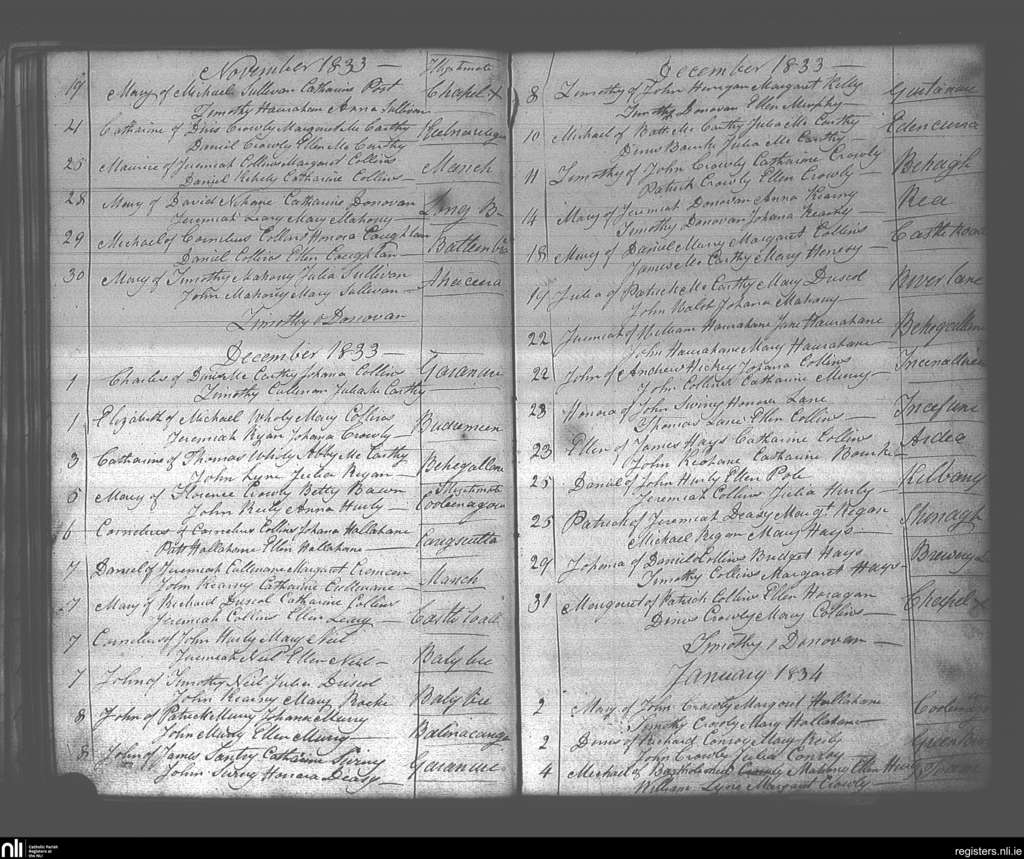 November 1833 — Illegitimate
19 Mary of Michael Sullivan Catharine Post Chapel
Timothy Hanrahan Anna Sullivan
21 Catharine of Denis Crowly Margaret Mc Carthy
Daniel Crowly Ellen Mc Carthy
25 Maurice of Jeremiah Collins Margaret Collins Manch
Daniel Kehely Catharine Collins —
28 Mary of David Nihane Catharine Donovan Long B—
Jeremiah Leary Mary Mahony —
29 Michael of Cornelius Collins Honora Coughlan
Daniel Collins Ellen Coughlan —
30 Mary of Timothy Mahony Julia Sullivan
John Mahony Mary Sullivan —
Timothy O Donovan
December 1833 —
1 Charles of Denis Mc Carthy Johana Collins Garancure
Timothy Cullinan Julia Mc Carthy
1 Elizabeth of Michael Wholy Mary Collins
Jeremiah Ryan Johana Crowly —
3 Catharine of Thomas Wholy Abby Mc Carthy Behegallane
John Lyne Julia Regan —
5 Mary of Florence Crowly Betty Bawn Illegitimate
John Kiely Anna Hurly — Cooleenagow
6 Cornelius of Cornelius Collins Johana Hallahane
Patt Hallahane Ellen Hallahane —
7 Daniel of Jeremiah Cullenane Margaret Manch
John Kearny Catharine Cullenane —
7 Mary of Richard Driscol Catharine Collins Castle
Jeremiah Collins Ellen Leary —
7 Cornelius of John Hurly Mary Neil
Jeremiah Neil Ellen Neil — Baly bee
7 John of Timothy Neil Julia Driscol
John Kearny Mary Roche Baly bee
8 John of Patrick Murry Johana Murry
John Murry Ellen Murry — Balinacauga
8 John of James Santry Catharine Swiny
John Swiny Honora Deasy — Garancure
December 1833 —
8 Timothy of John Horrigan Margaret Kelly
Timothy Donovan Ellen Murphy —
10 Michael of Batt Mc Carthy Julia Mc Carthy Edencurra
Denis Bourke Julia Mc Carthy —
11 Timothy of John Crowly Catharine Crowly Behagh
Patrick Crowly Ellen Crowly —
14 Mary of Jeremiah Donovan Anna Kearny Nea
Timothy Donovan Johana Kearny —
18 Mary of Daniel Murry Margaret Collins Castle Road
James Mc Carthy Mary Henesy —
19 Julia of Patrick Mc Carthy Mary Driscol River lane
John Walsh Johana Mahony —
22 Jeremiah of William Hanrahane Jane Hanrahane Behegallane
John Hanrahane Mary Hanrahane
22 John of Andrew Hickey Johana Collins
John Collins Catharine Murry —
23 Honora of John Swiny Honora Lane
Thomas Lane Ellen Collins —
23 Ellen of James Hays Catharine Collins Ardea
John Keohane Catharine Bourke —
25 Daniel of John Hurly Ellen Pole Kilbany
Jeremiah Collins Julia Hurly —
25 Patrick of Jeremiah Deasy Margt Regan Shinagh
Michael Regan Mary Hays —
29 Johana of Daniel Collins Bridget Hays Brewery L
Timothy Collins Margaret Hays —
31 Margaret of Patrick Collins Ellen Horagan Chapel
Denis Crowly Mary Collins —
Timothy O Donovan —
January 1834
2 Mary of John Crowly Margaret Hallahane
Timothy Crowly Mary Hallahane
2 Denis of Richard Conroy Mary Kiely
John Crowly Julia Conroy
4 Michael of Bartholomew Mahony Ellen Hurly
William Lyne Margaret Crowly —
nli Catholic Parish
Registers at
the NLI
registers.nli.ie